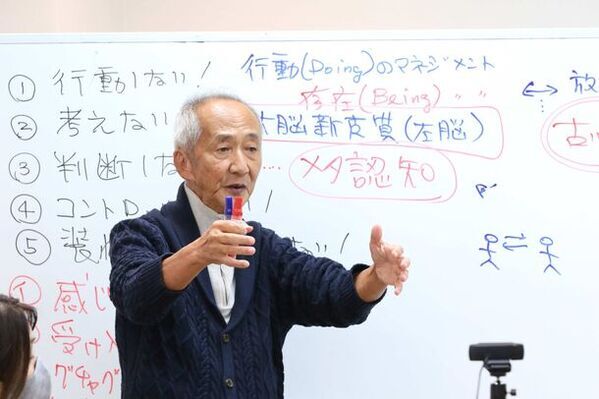 ① 行動しない!
② 考えない
③ 判断しな
④ コントロ い!
⑤ 装 ない!
① 感じ
受け入
グチャグ
行動(Doing)のマネジメント
存在(Being) 〃 〃
大脳新皮質(左脳)
メタ認知
放
古